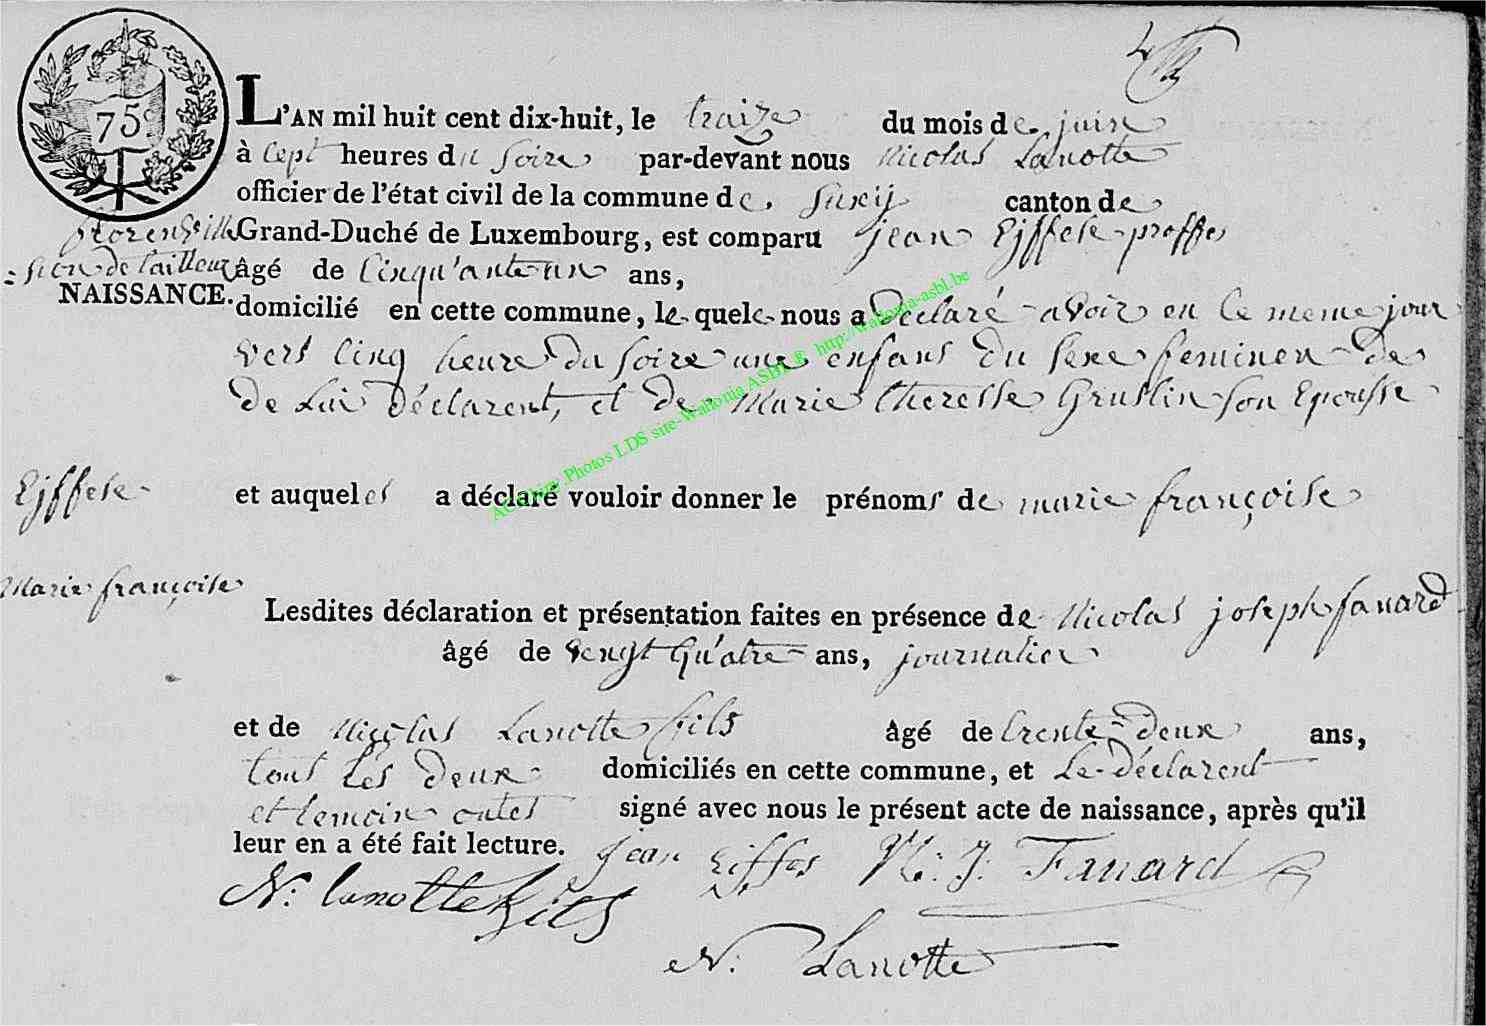 75ᶜ
L'AN mil huit cent dix-huit, le traize du mois de juin
à cept heures du soire par-devant nous Nicolas Lanotte
officier de l'état civil de la commune de Suxy canton de
florenville Grand-Duché de Luxembourg, est comparu jean Eiffele proffes
=sion de tailleur âgé de Cinqu'ante un ans,
NAISSANCE. domicilié en cette commune, le quel nous a déclaré avoir eu le meme jour
vers cinq heure du soire une enfans du sexe feminen de
de Lui déclarent, et de Marie theresse Gruslin son Epousse
Eiffele et auquel es a déclaré vouloir donner le prénoms de marie françoise
Marie françoise
Lesdites déclaration et présentation faites en présence de Nicolas joseph fanard
âgé de vengt Qu'atre ans, journalier
et de Nicolas Lanotte fils âgé de trente deux ans,
tous les deux domiciliés en cette commune, et Le déclarent
et temoin ontes signé avec nous le présent acte de naissance, après qu'il
leur en a été fait lecture. jean Eiffes N: J: Fanard
N: lanotte fils
N: Lanotte
ACChiny Photos LDS site-Wallonia ASBL.g http://wallonia-asbl.be